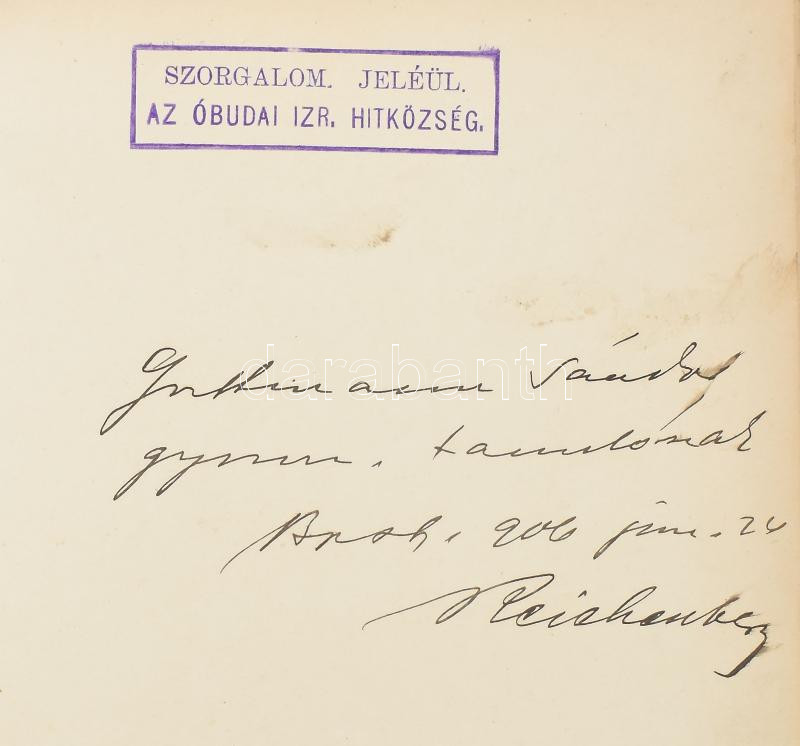 SZORGALOM. JELÉÜL.
AZ ÓBUDAI IZR. HITKÖZSÉG.
darabanth
Guttmann Sándor
gymn. tanulónak
Bpest, 906 jun. 24
Reichenberg